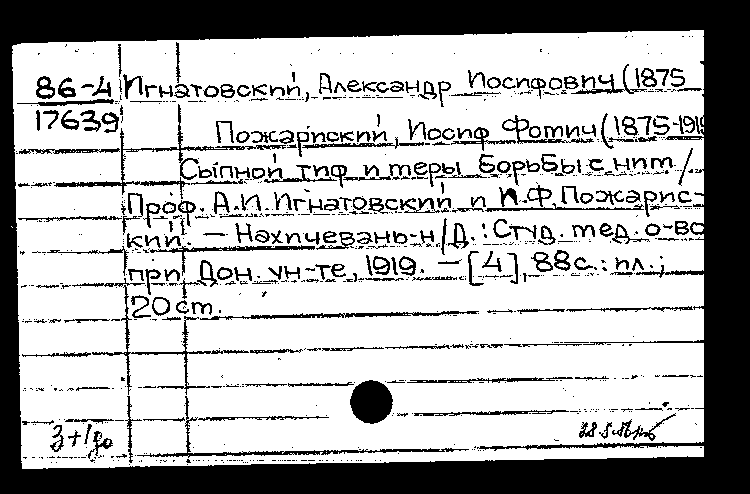 86-4 Игнатовский, Александр Иосифович (1875
17639
Пожарийский, Иосиф Фотич (1875-1919
Сыпной тиф и меры борьбы с ним /
Проф. А.И. Игнатовский и И.Ф. Пожарис-
кий. — Нахичевань-н/Д.: Студ. мед. о-во
при Дон. ун-те, 1919. — [4], 88 с.: ил.;
20 cm.
3+1до